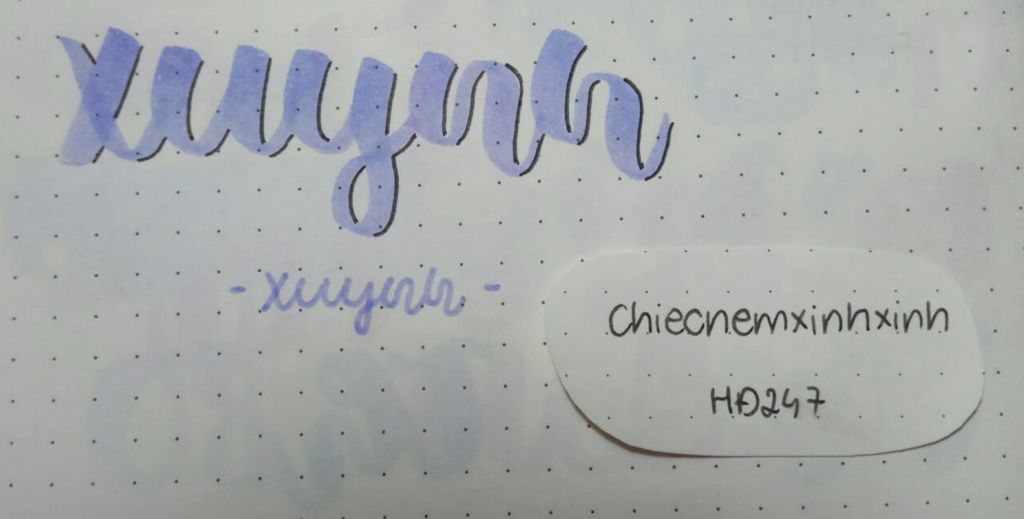 xuynh
- xuynh -
chiecnemxinhxinh
HĐ247